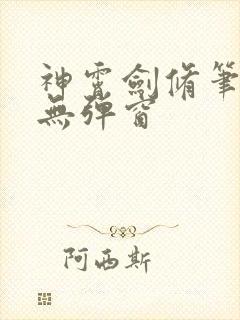 神霄劍脩筆
無彈窗
阿西斯